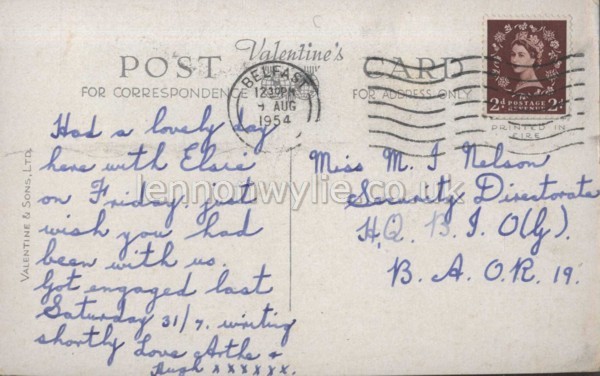 POST Valentine's CARD
FOR CORRESPONDENCE
FOR ADDRESS ONLY
BELFAST
12 30 PM
AUG
1954
2D POSTAGE REVENUE 2D
PRINTED IN
EIRE
VALENTINE & SONS, LTD.
Had a lovely day
here with Elsie
on Friday just
wish you had
been with us.
Got engaged last
Saturday 31/7. writing
shortly Love Artha &
Hugh xxxxxx.
Miss M. I Nelson
Security Directorate
H.Q. B. I. O(G).
B. A. O. R. 19.
lennonwylie.co.uk